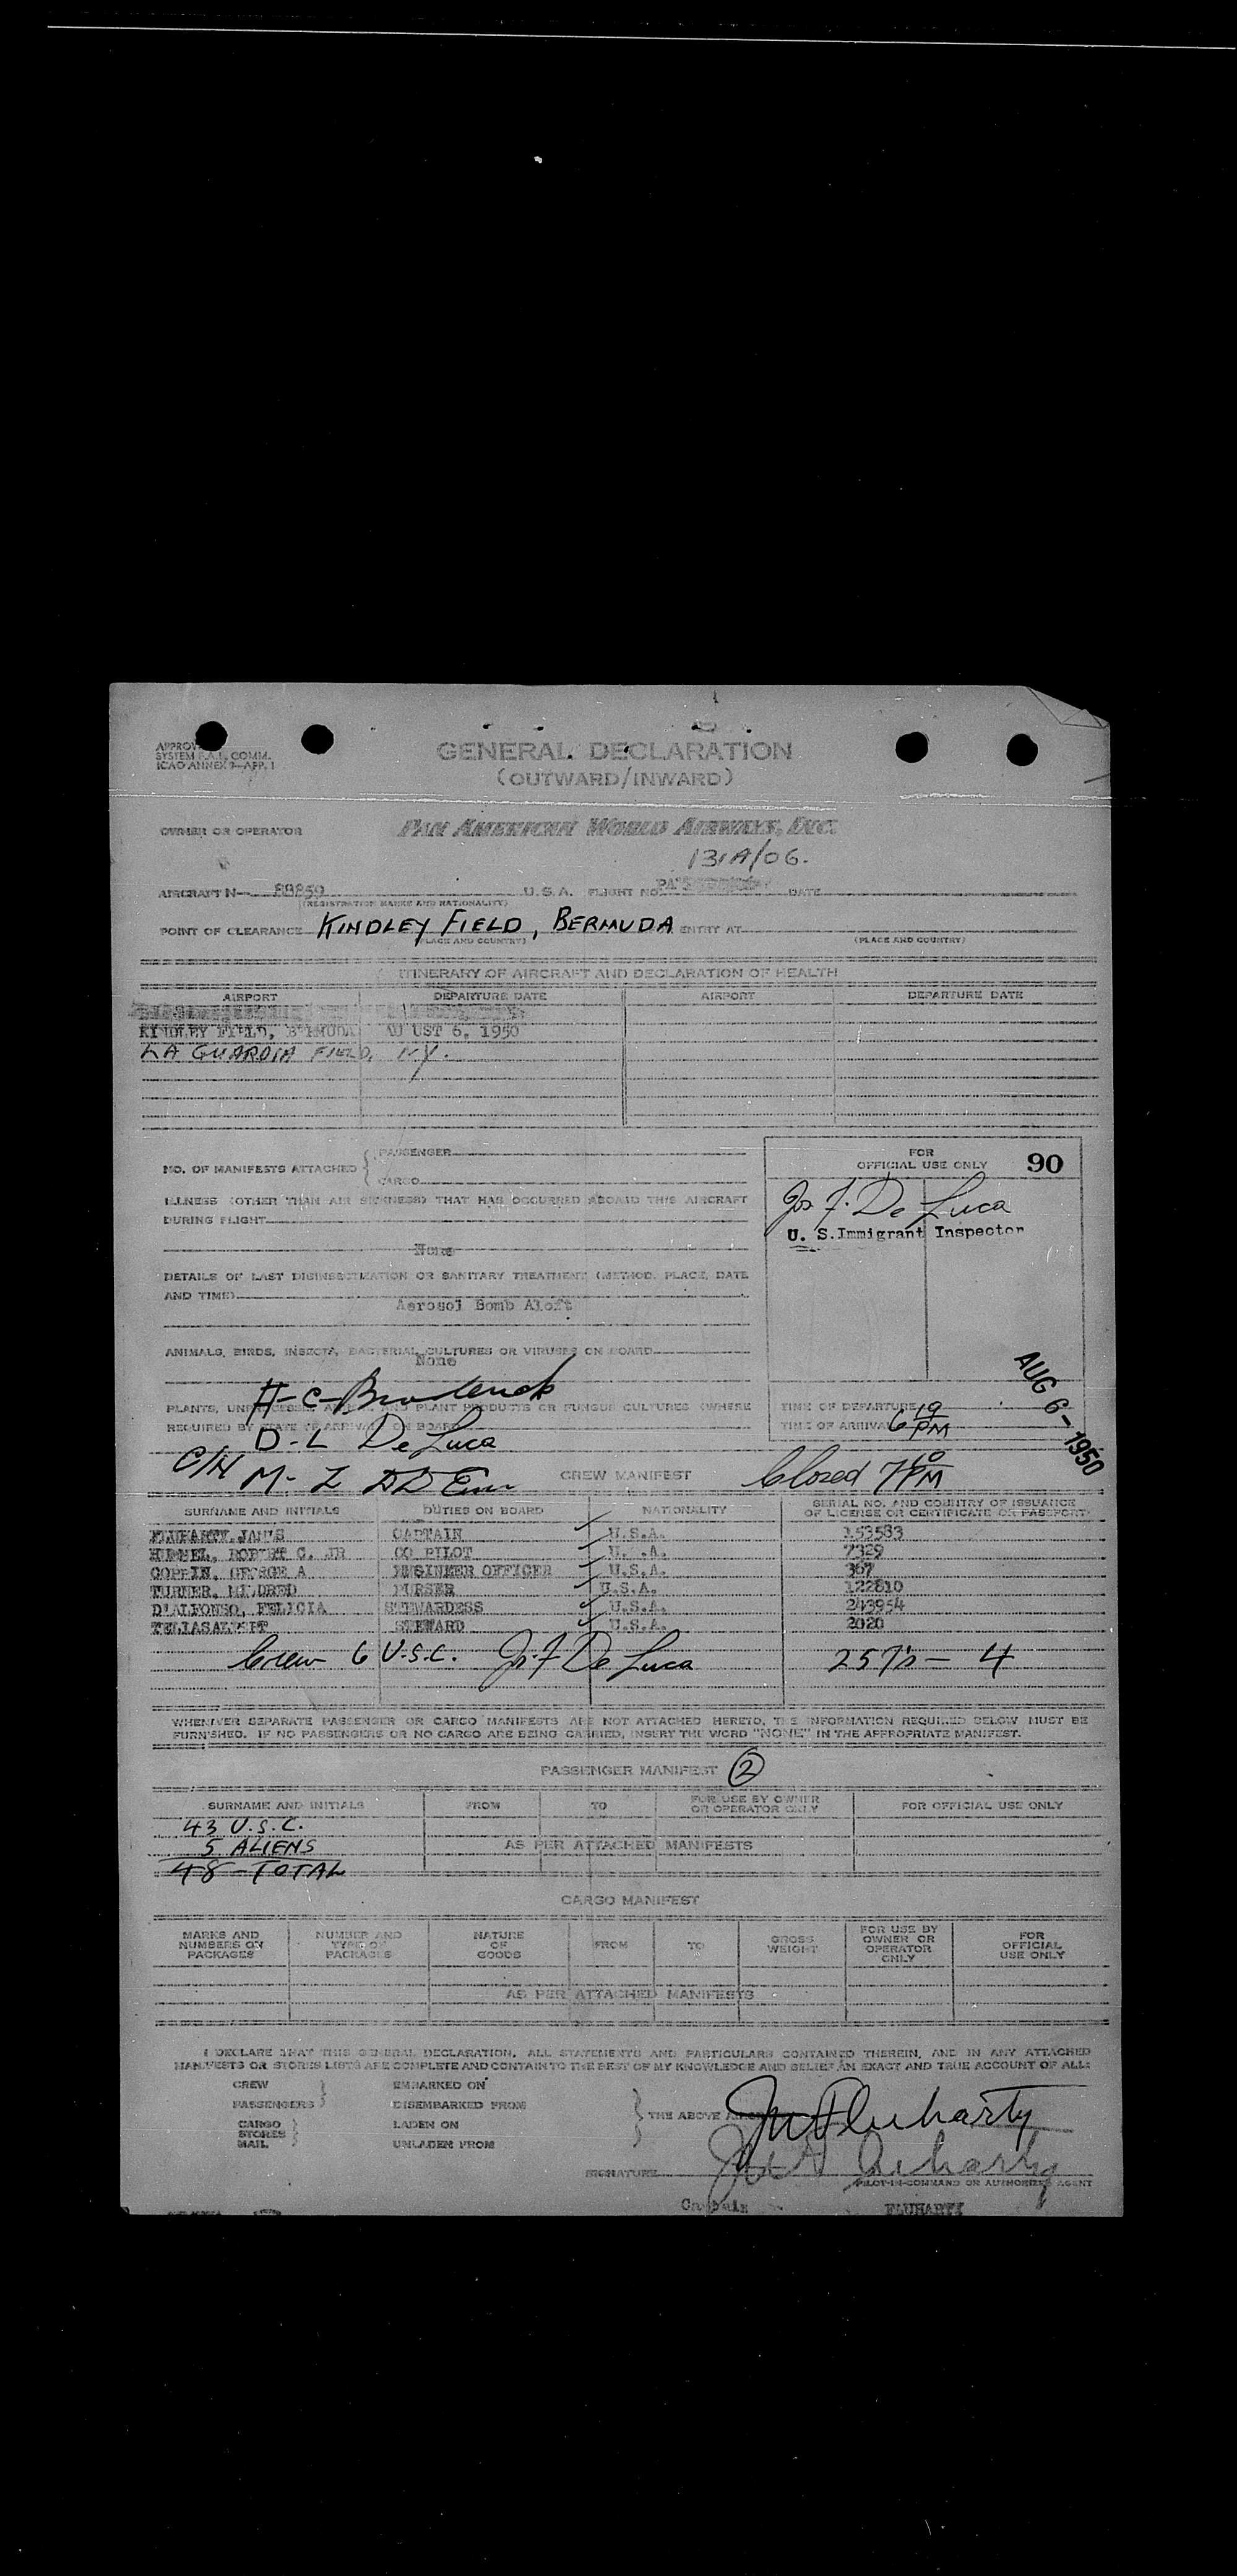 GENERAL DECLARATION
(OUTWARD/INWARD)
SYSTEM F.A.L. COMM.
ICAO ANNEX 9—APP. 1
OWNER OR OPERATOR PAN AMERICAN WORLD AIRWAYS, INC.
131A/06.
AIRCRAFT N— 88859 U.S.A. FLIGHT NO. DATE
(REGISTRATION MARKS AND NATIONALITY)
POINT OF CLEARANCE KINDLEY FIELD, BERMUDA ENTRY AT
(PLACE AND COUNTRY) (PLACE AND COUNTRY)
ITINERARY OF AIRCRAFT AND DECLARATION OF HEALTH
AIRPORT DEPARTURE DATE AIRPORT DEPARTURE DATE
KINDLEY FIELD, BERMUDA AU UST 6, 1950
LA GUARDIA FIELD, N.Y.
NO. OF MANIFESTS ATTACHED { PASSENGER
CARGO
FOR
OFFICIAL USE ONLY 90
Jos F. De Luca
U. S. Immigrant Inspector
ILLNESS (OTHER THAN AIR SICKNESS) THAT HAS OCCURRED ABOARD THIS AIRCRAFT
DURING FLIGHT
None
DETAILS OF LAST DISINSECTIZATION OR SANITARY TREATMENT (METHOD, PLACE, DATE
AND TIME)
Aerosol Bomb Aloft
ANIMALS, BIRDS, INSECTS, BACTERIAL CULTURES OR VIRUSES ON BOARD
None
AUG 6-1950
PLANTS, AND PLANT PRODUCTS OR FUNGUS CULTURES (WHERE
REQUIRED BY STATE OF ARRIVAL) ON BOARD
D-L De Luca
TIME OF DEPARTURE
TIME OF ARRIVAL 6 19 PM
CREW MANIFEST
Closed 7 10 PM
SURNAME AND INITIALS DUTIES ON BOARD NATIONALITY SERIAL NO. AND COUNTRY OF ISSUANCE
OF LICENSE OR CERTIFICATE OR PASSPORT
FLUHARTY, JAMES CAPTAIN U.S.A. 153583
ROBERT C. JR CO PILOT U. .A. 7329
COPPIN, GEORGE A ENGINEER OFFICER U.S.A. 367
TURNER, MILDRED PURSER U.S.A. 122810
D'ALFONSO, FELICIA STEWARDESS U.S.A. 243954
STEWARD U.S.A. 2020
Crew 6 U.S.C. Js. F De Luca 257's — 4
WHENEVER SEPARATE PASSENGER OR CARGO MANIFESTS ARE NOT ATTACHED HERETO, THE INFORMATION REQUIRED BELOW MUST BE
FURNISHED. IF NO PASSENGERS OR NO CARGO ARE BEING CARRIED, INSERT THE WORD "NONE" IN THE APPROPRIATE MANIFEST.
PASSENGER MANIFEST 2
SURNAME AND INITIALS FROM TO FOR USE BY OWNER
OR OPERATOR ONLY FOR OFFICIAL USE ONLY
43 U.S.C.
5 ALIENS AS PER ATTACHED MANIFESTS
48 - TOTAL
CARGO MANIFEST
MARKS AND
NUMBERS ON
PACKAGES
NUMBER AND
TYPE OF
PACKAGES
NATURE
OF
GOODS
FROM
TO
GROSS
WEIGHT
FOR USE BY
OWNER OR
OPERATOR
ONLY
FOR
OFFICIAL
USE ONLY
AS PER ATTACHED MANIFESTS
I DECLARE THAT THIS GENERAL DECLARATION, ALL STATEMENTS AND PARTICULARS CONTAINED THEREIN, AND IN ANY ATTACHED
MANIFESTS OR STORES LISTS ARE COMPLETE AND CONTAIN TO THE BEST OF MY KNOWLEDGE AND BELIEF AN EXACT AND TRUE ACCOUNT OF ALL:
CREW EMBARKED ON
PASSENGERS } DISEMBARKED FROM
CARGO LADEN ON } THE ABOVE
STORES
MAIL } UNLADEN FROM
Fluharty
SIGNATURE
PILOT-IN-COMMAND OR AUTHORIZED AGENT
Captain FLUHARTY